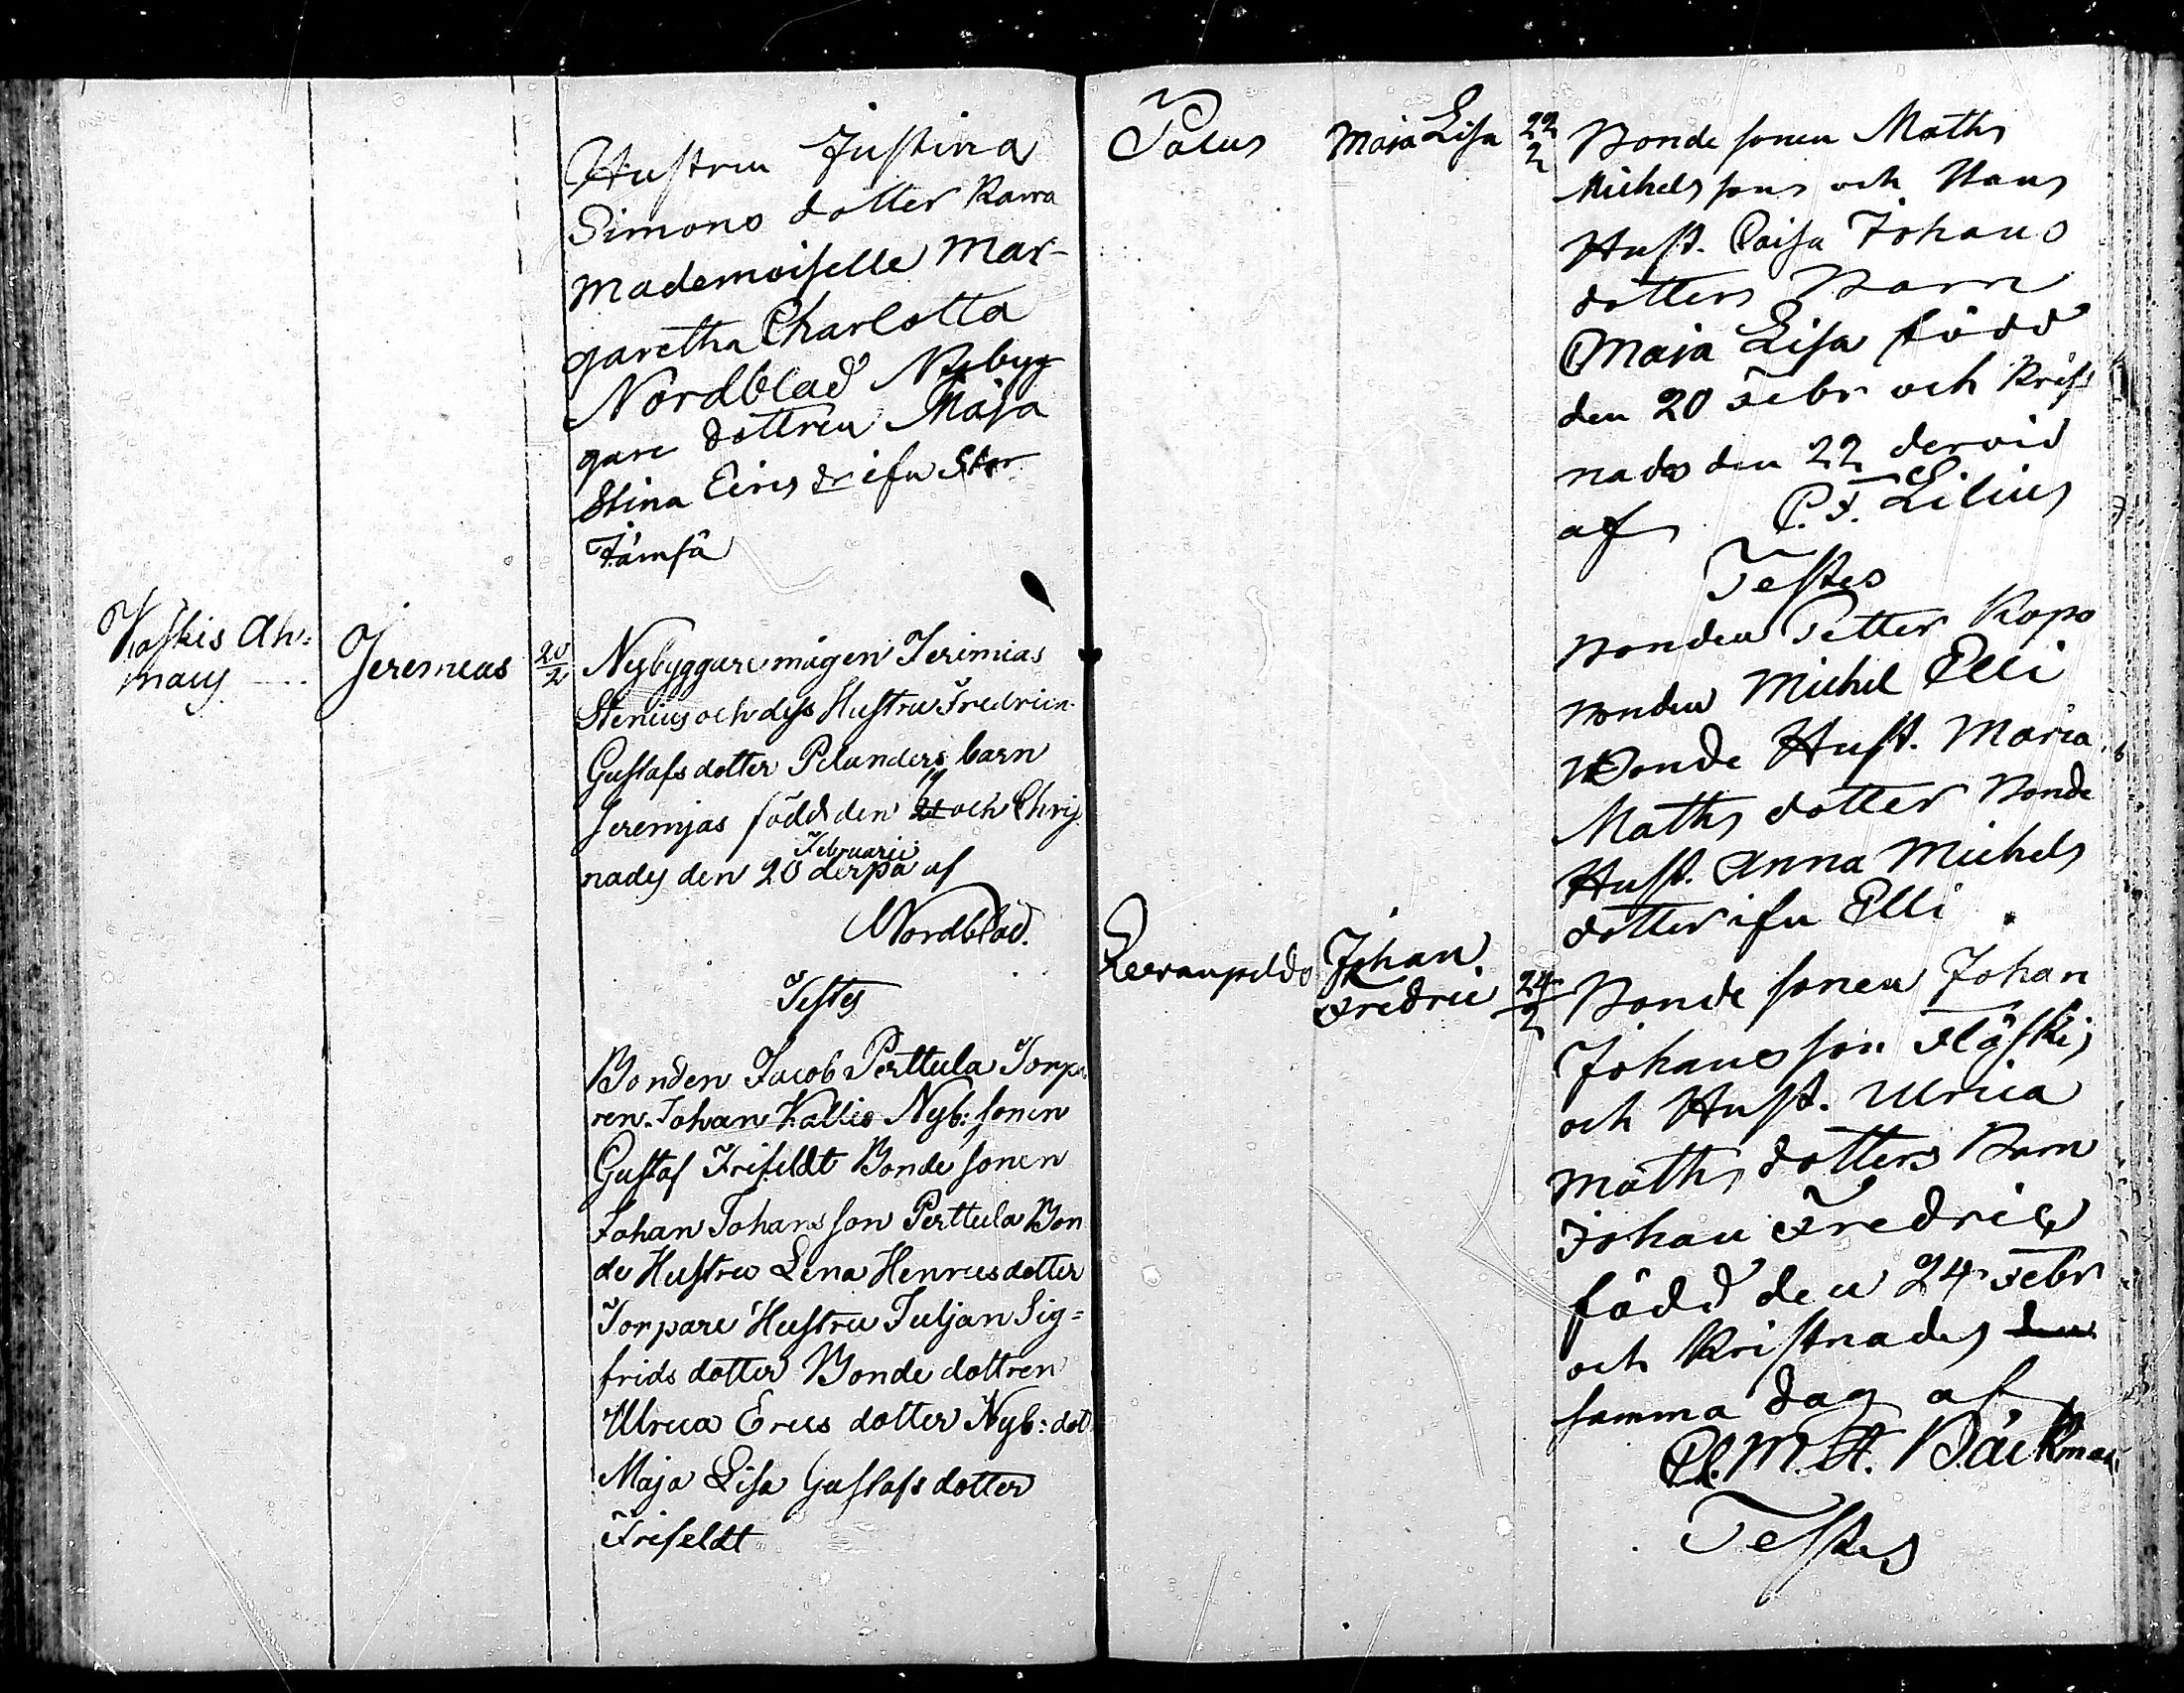 Hustru Justina
Simons dotter Rawa
Mademoiselle Mar-
garetha Charlotta
Nordblad Nybyg
gare dottren Maja
Stina Erics dr ifrn Stor
Jämsä
Koskis Ah=
Jeremeas
20/2
Nybyggare mågen Jerimias
Stenius och dess Hustru Fredrica
Gustafs dotter Pelanders barn
Jeremjas född den 21 och Chris
19
nades den 20 derpå af
Februarii
Nordblad.
Testes
Bonden Jacob Perttula Torpa
ren Johan Kallio Nyb: sonen
Gustaf Frifeldt Bonde sonen
Johan Johans son Perttula Bon
de Hustru Lena Henrics dotter
Torpare Hustru Juljan Sig=
frids dotter Bonde dottren
Ulrica Erics dotter Nyb: dot
Maja Lisa Gustafs dotter
Frifeldt
Palus
Maja Lisa
22/2
Bonde sonen Maths
Michels sons och Hans
Hust. Caisa Johans
dotters Barn
Maja Lisa född
den 20 Febr och Krist
nades den 22 dervid
af C. F. Lilius
Testes
Bonden Petter Kopo
Bonden Michel Elli
Bonde Hust. Maria
Maths dotter Bonde
Hust. Anna Michels
dotter ifrn Elli
Johan
Fredric
24/2
Bonde sonen Johan
Johans son Flöjki
och Hust. Ulrica
Maths dotters Barn
Johan Fredric
född den 24 Febr
och Kristnades den
samma dag af
Cl. M. H. Bäckman
Testes